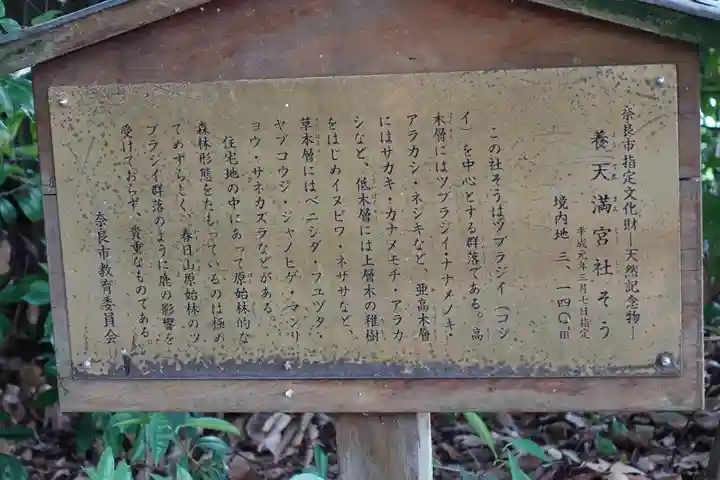 奈良市指定文化財―天然記念物―
平成元年三月七日指定
養天満宮社そう
境内地 三、一四〇㎡
この社そうはツブラジイ（コジ
イ）を中心とする群落である。高
木層にはツブラジイ・ナナメノキ・
アラカシ・ネジキなど、亜高木層
にはサカキ・カナメモチ・アラカ
シなど、低木層には上層木の稚樹
をはじめイヌビワ・ネザサなど、
草本層にはベニシダ・フユヅタ・
ヤブコウジ・ジャノヒゲ・マンリ
ョウ・サネカズラなどがある。
住宅地の中にあって原始林的な
森林形態をたもっているのは極め
てめずらしく、春日山原始林のツ
ブラジイ群落のように鹿の影響を
受けておらず、貴重なものである。
奈良市教育委員会